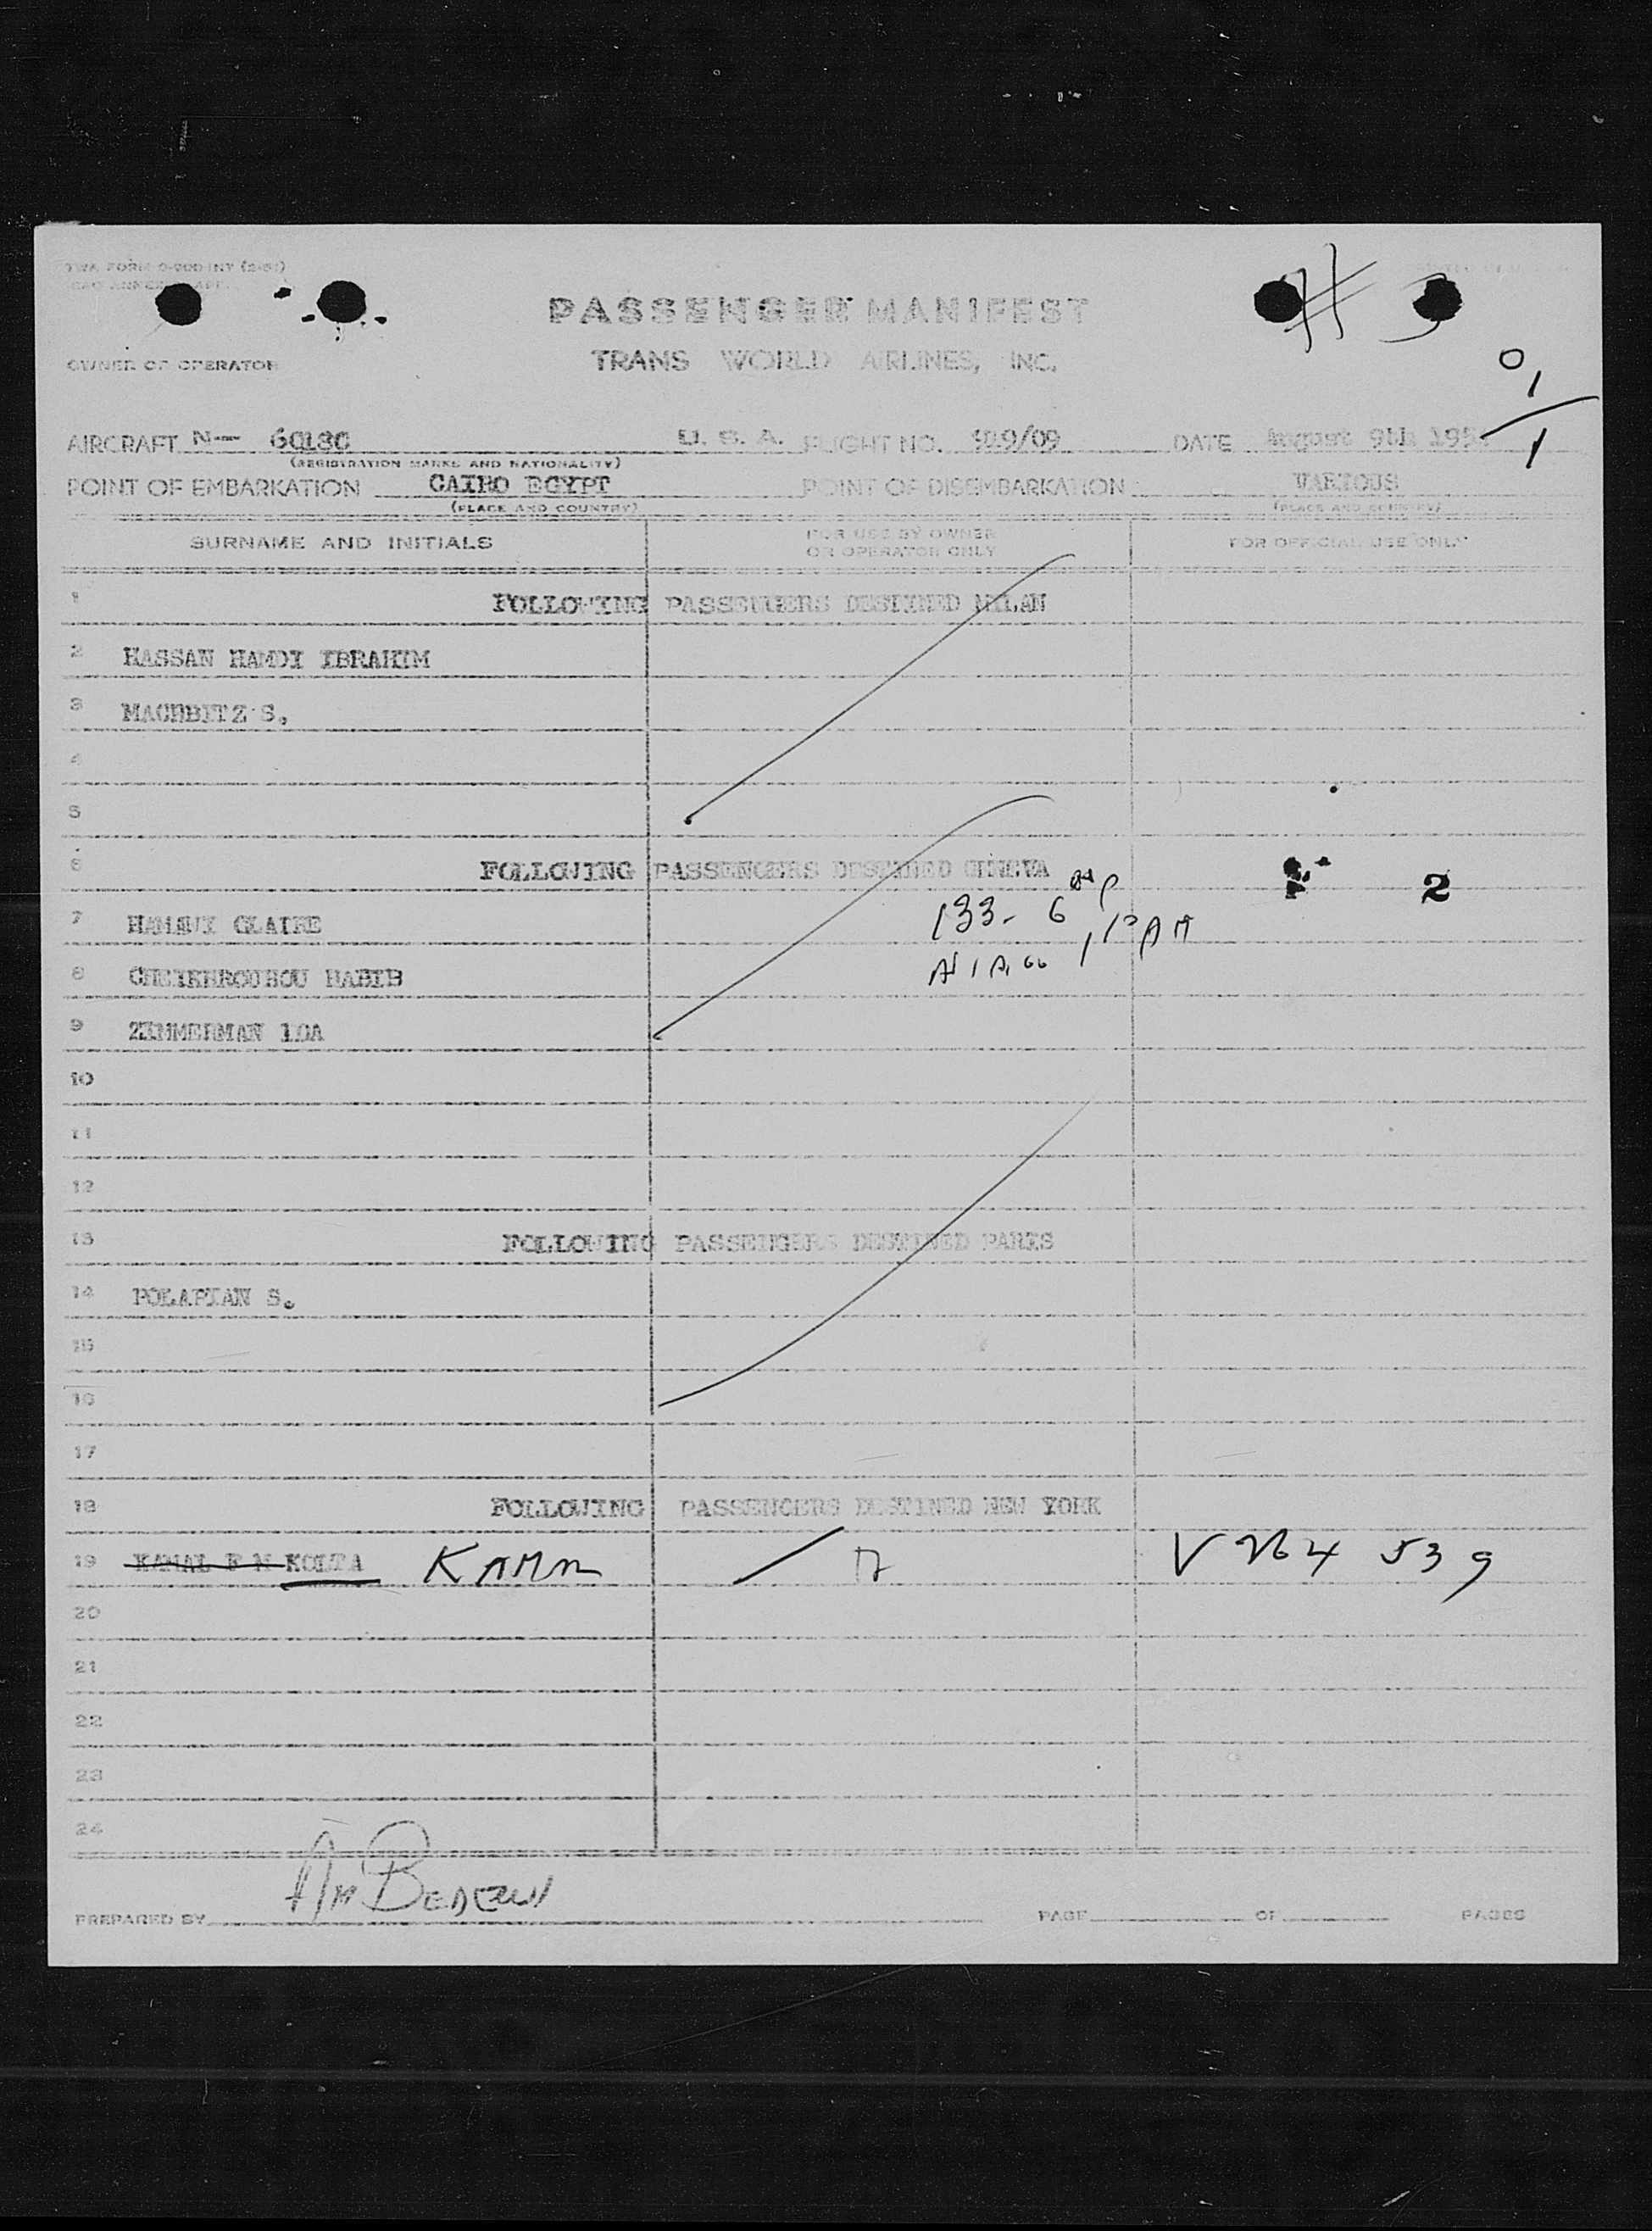 TWA FORM
# 3
PASSENGER MANIFEST
OWNER OR OPERATOR
TRANS WORLD AIRLINES, INC.
0/1
1
AIRCRAFT N— U. S. A. FLIGHT NO. DATE August 9th
(REGISTRATION MARKS AND NATIONALITY)
POINT OF EMBARKATION CAIRO EGYPT POINT OF DISEMBARKATION VARIOUS
(PLACE AND COUNTRY) (PLACE AND COUNTRY)
SURNAME AND INITIALS FOR USE BY OWNER OR OPERATOR ONLY FOR OFFICIAL USE ONLY
1 FOLLOWING PASSENGERS DESTINED MILAN
2 HASSAN HAMDI IBRAHIM
3 MACHBITZ S.
4
5
6 FOLLOWING PASSENGERS DESTINED GENEVA
2
7 CLAIRE
133- 6
8 CHEIKHROUHOU HABIB
9 ZIMMERMAN
10
11
12
13 FOLLOWING PASSENGERS DESTINED PARIS
14 S.
15
16
17
18 FOLLOWING PASSENGERS DESTINED NEW YORK
19 KAMAL F N KOLTA V 264 539
20
21
22
23
24
PREPARED BY PAGE OF PAGES